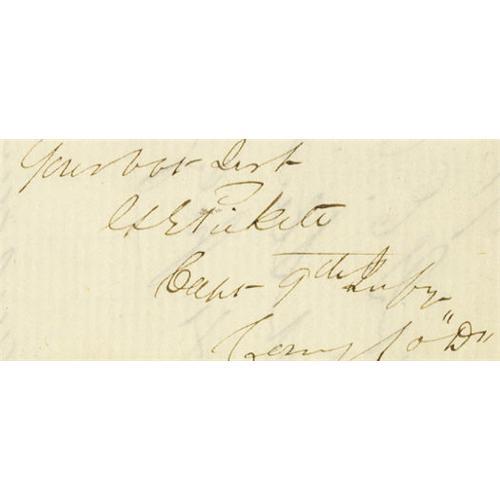 Your obt Sert
G E Pickett
Capt 9th Infy
Comg Co "D"